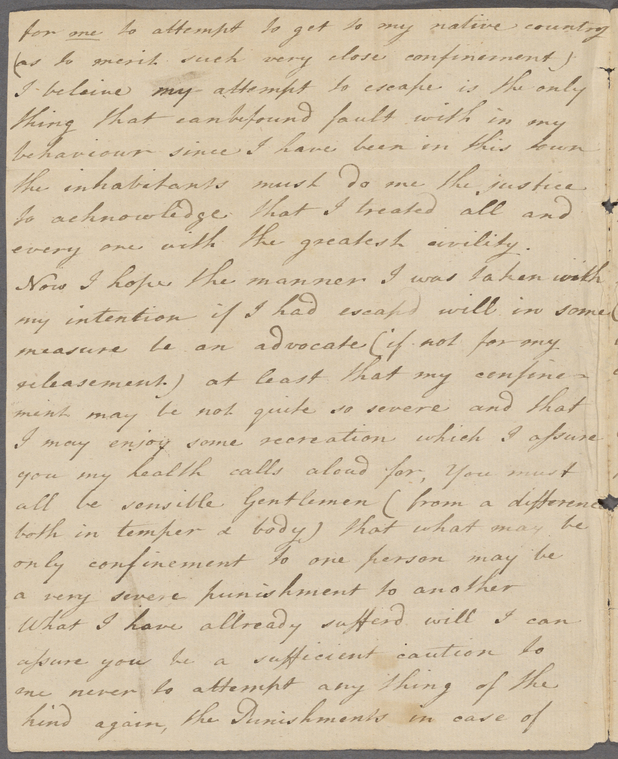 for me to attempt to get to my native country
(as to merit such very close confinement)
I beleive my attempt to escape is the only
thing that can be found fault with in my
behaviour since I have been in this town
the inhabitants must do me the justice
to acknowledge that I treated all and
every one with the greatest civility.
Now I hope the manner I was taken with
my intention if I had escapd will in some
measure be an advocate (if not for my
releasement.) at least that my confine-
ment may be not quite so severe and that
I may enjoy some recreation which I assure
you my health calls aloud for, You must
all be sensible Gentlemen (from a difference
both in temper & body) that what may be
only confinement to one person may be
a very severe punishment to another
What I have allready sufferd will I can
assure you be a sufficient caution to
me never to attempt any thing of the
kind again, the Punishments in case of